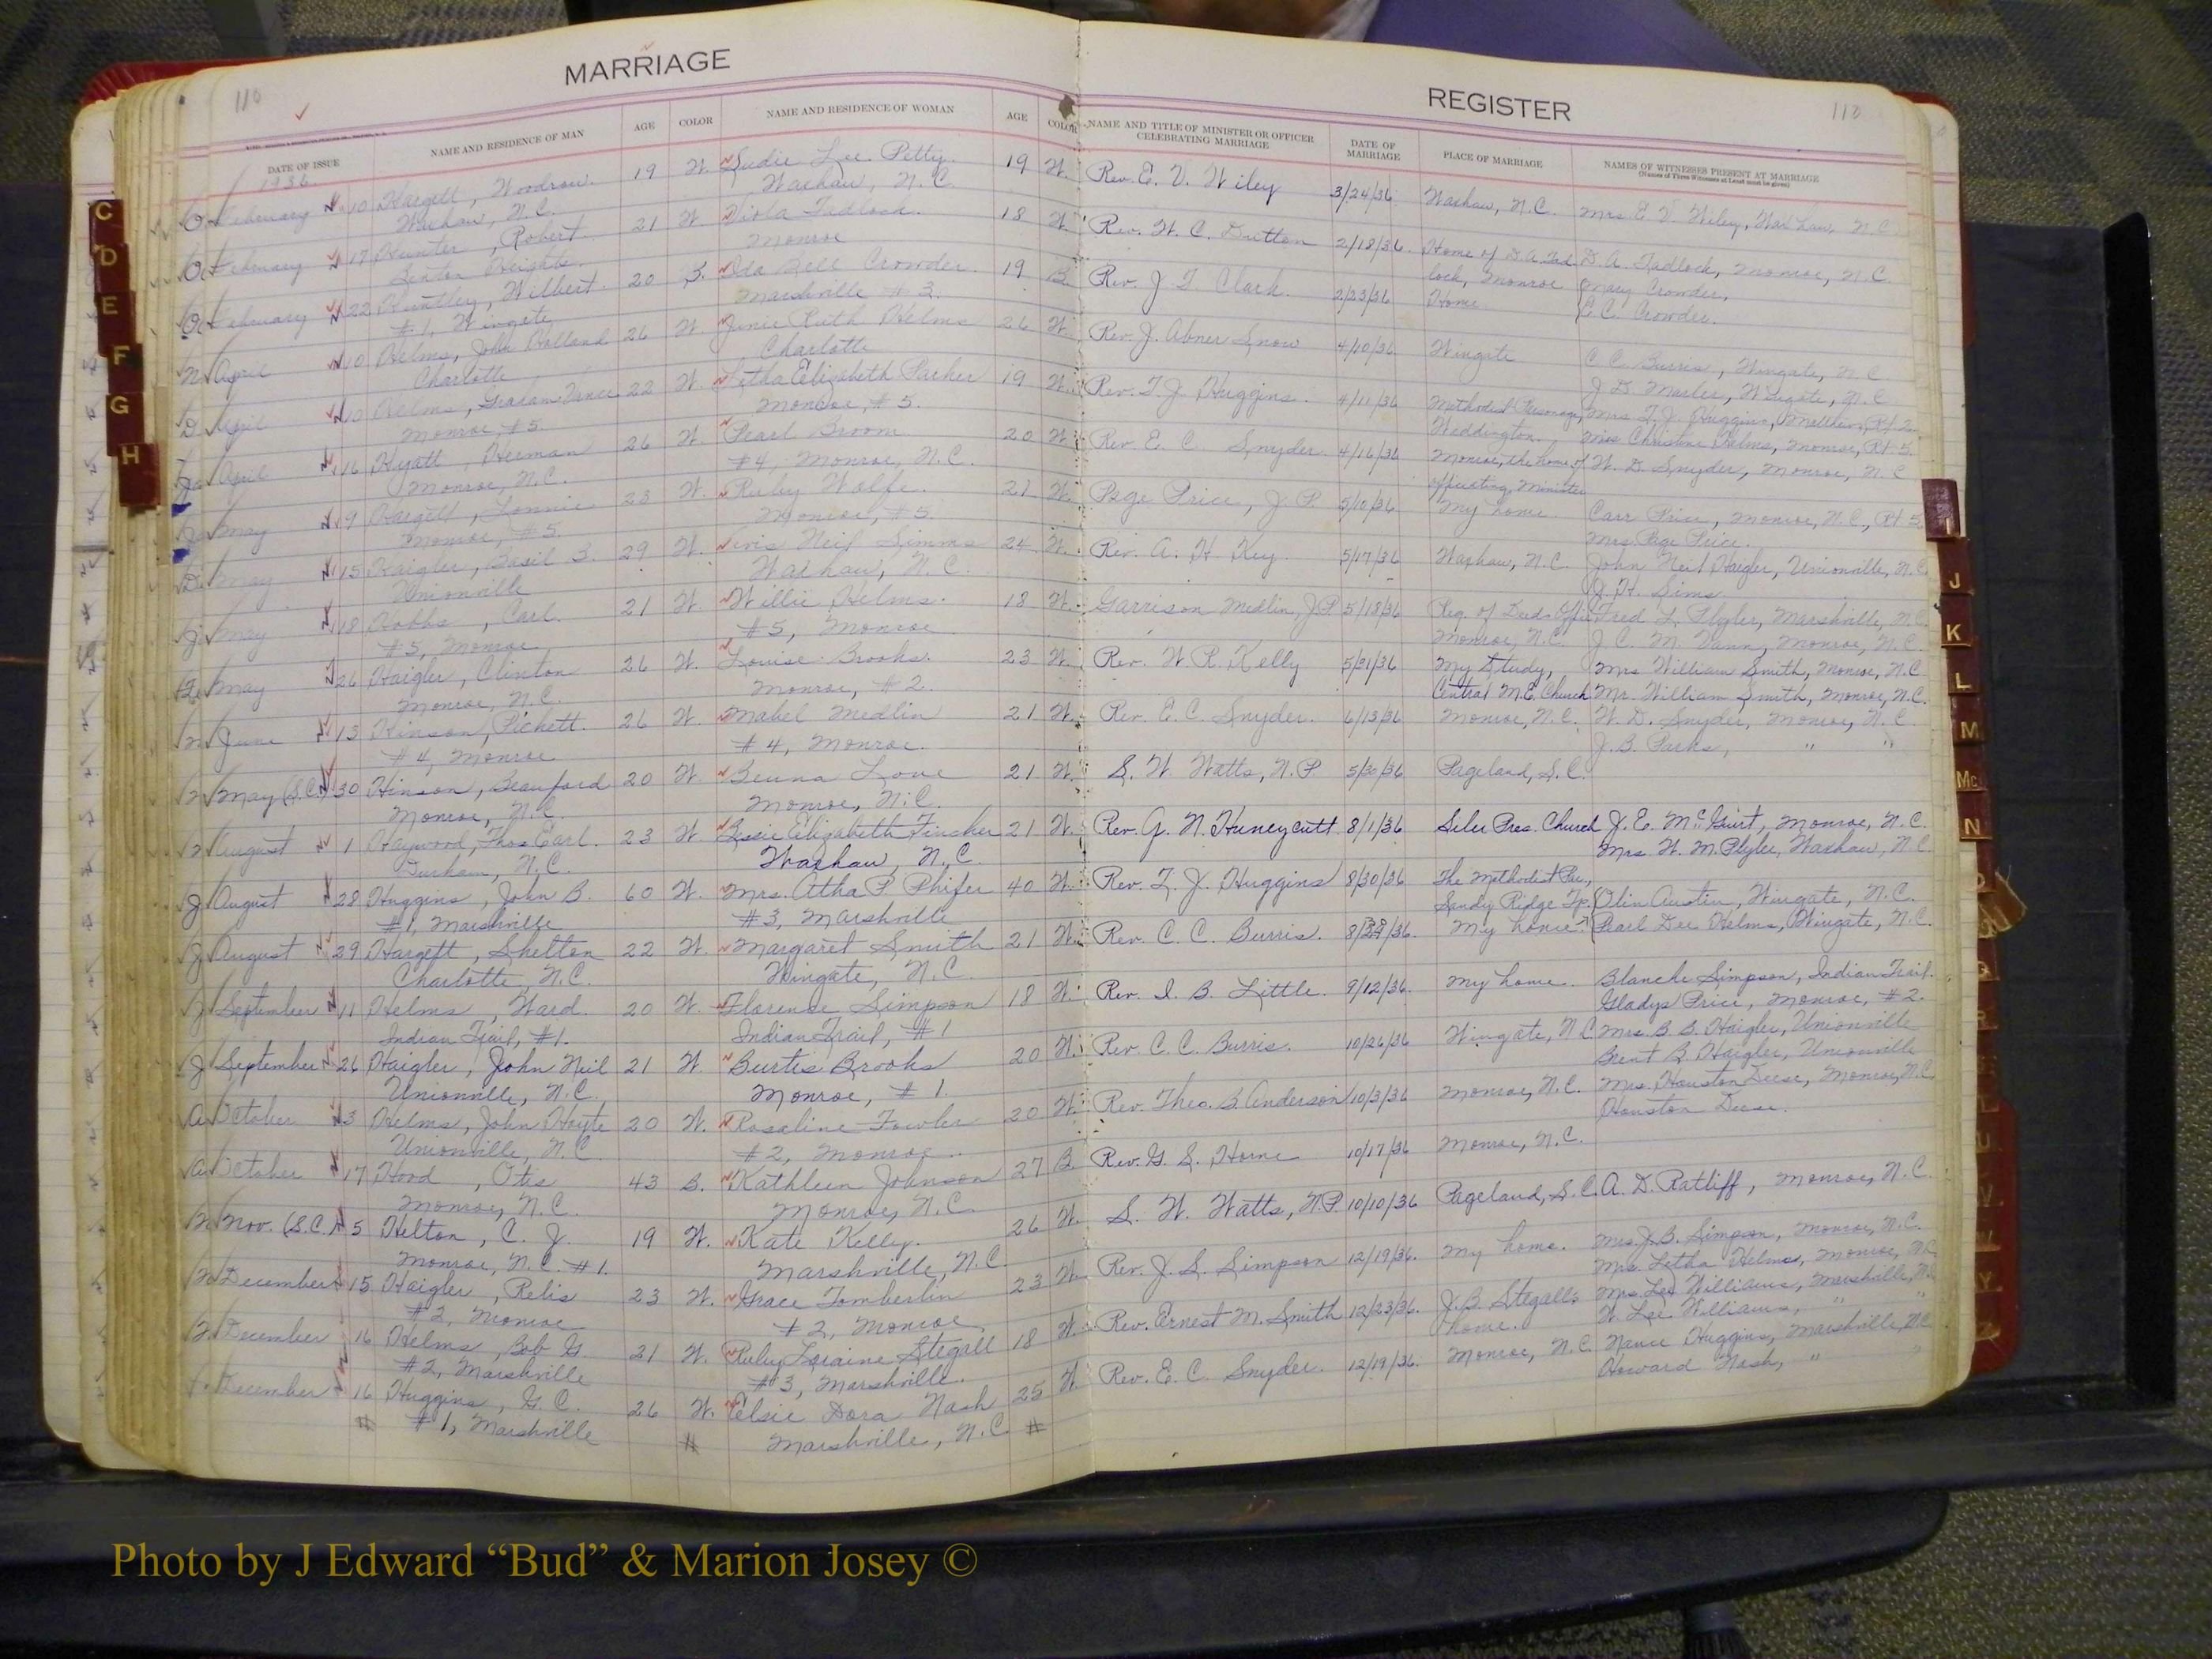 110
MARRIAGE
DATE OF ISSUE
NAME AND RESIDENCE OF MAN
AGE
COLOR
NAME AND RESIDENCE OF WOMAN
AGE
COLOR
1936
February 10 Hargett, Woodrow. 19 W. Sudie Lee Petty. 19 W.
Waxhaw, N.C. Waxhaw, N.C.
February 17 Hunter, Robert 21 W. Viola Tadlock. 18 W.
Benton Heights Monroe
February 22 Huntley, Wilbert. 20 B. Ida Bell Crowder. 19 B.
#1, Wingate Marshville #3.
April 10 Helms, John Holland 26 W. Ruth Helms 26 W.
Charlotte Charlotte
April 10 Helms, Vance 22 W. Letha Elizabeth Parker 19 W.
Monroe #5 Monroe, #5.
April 16 Hyatt, Herman 26 W. Pearl Broom 20 W.
Monroe, N.C. #4, Monroe, N.C.
May 9 Hargett, Lonnie 23 W. Ruby Wolfe. 21 W.
Monroe, #5. Monroe, #5.
May 15 Haigler, Basil B. 29 W. Neil Simms 24 W.
Unionville Waxhaw, N.C.
May 18 Hobbs, Carl. 21 W. Willie Helms. 18 W.
#5, Monroe #5, Monroe
May 26 Haigler, Clinton 26 W. Louise Brooks. 23 W.
Monroe, N.C. Monroe, #2.
June 13 Hinson, Pickett. 26 W. Mabel Medlin 21 W.
#4, Monroe #4, Monroe.
May (S.C.) 30 Hinson, Beauford 20 W. Beuna Love 21 W.
Monroe, N.C. Monroe, N.C.
August 1 Haywood, Thos Earl. 23 W. Bessie Elizabeth Fincher 21 W.
Durham, N.C. Waxhaw, N.C.
August 28 Huggins, John B. 60 W. Mrs. Atha P Phifer 40 W.
#1, Marshville #3, Marshville
August 29 Hargett, Shelton 22 W. Margaret Smith 21 W.
Charlotte, N.C. Wingate, N.C.
September 11 Helms, Ward. 20 W. Florence Simpson 18 W.
Indian Trail, #1. Indian Trail, #1
September 26 Haigler, John Neil 21 W. Burtis Brooks 20 W.
Unionville, N.C. Monroe, #1.
October 3 Helms, John Hoyte 20 W. Rosaline Fowler 20 W.
Unionville, N.C. #2, Monroe.
October 17 Hood, Otis 43 B. Kathleen Johnson 27 B.
Monroe, N.C. Monroe, N.C.
Nov. (S.C.) 5 Helton, C. J. 19 W. Kate Kelly. 26 W.
Monroe, N.C. #1. Marshville, N.C.
December 15 Haigler, Relis 23 W. Grace Tomberlin 23 W.
#2, Monroe #2, Monroe.
December 16 Helms, Bob G. 21 W. Ruby Loraine Stegall 18 W.
#2, Marshville #3, Marshville.
December 16 Huggins, G. C. 26 W. Elsie Dora Nash 25 W
#1, Marshville Marshville, N.C.
REGISTER
110
NAME AND TITLE OF MINISTER OR OFFICER
CELEBRATING MARRIAGE
DATE OF
MARRIAGE
PLACE OF MARRIAGE
NAMES OF WITNESSES PRESENT AT MARRIAGE
(Names of Three Witnesses at Least must be given)
Rev. E. V. Wiley 3/24/36 Waxhaw, N.C. Mrs. E V Wiley, Waxhaw, N.C
Rev. W. C. Dutton 2/18/36. Home of D.A. Tad D. A. Tadlock, Monroe, N.C.
lock, Monroe Mary Crowder,
Rev. J. T. Clark. 2/23/36 Home E. C. Crowder.
Rev. J. Abner Snow 4/10/36 Wingate C. C. Burris, Wingate, N.C
J D Wingate, N.C
Rev. T. J. Huggins. 4/11/36 Methodist Parsonage, Mrs. T. J. Huggins, Matthews, Rt 2.
Weddington. Miss Christine Helms, Monroe, Rt 5.
Rev. E. C. Snyder. 4/16/36 Monroe, the home of W. D. Snyder, Monroe, N.C
officiating Minister
Page Price, J. P. 5/10/36 My home. Carr Price, Monroe, N.C., Rt 5
Mrs. Page Price.
Rev. A. H Key 5/17/36 Waxhaw, N.C. John Neil Haigler, Unionville, N.C.
J. H. Sims.
Garrison Medlin, J.P. 5/18/36 Reg. of Deeds Office Fred L Plyler, Marshville, N.C.
Monroe, N.C. J. C. M. Vann, Monroe, N.C.
Rev. W. R. Kelly 5/31/36 My Study, Mrs William Smith, Monroe, N.C
Central M.E. Church Mr. William Smith, Monroe, N.C.
Rev. E. C. Snyder. 6/13/36 Monroe, N.C. W. D. Snyder, Monroe, N.C
J. B. Parks, " "
S. W Watts, N.P 5/30/36 Pageland, S.C.
Rev. G. N. Huneycutt 8/1/36 Siler Pres. Church J. E. McGuirt, Monroe, N.C.
Mrs W. M. Plyler, Waxhaw, N.C.
Rev. T. J. Huggins 8/30/36 The Methodist Par.,
Sandy Ridge Tp. Olin Austin, Wingate, N.C.
Rev. C. C. Burris. 8/29/36. My home. Pearl Dee Helms, Wingate, N.C.
Rev. I. B. Little. 9/12/36. My home. Blanche Simpson, Indian Trail.
Gladys Price, Monroe, #2.
Rev. C. C. Burris. 10/26/36 Wingate, N.C. Mrs. B. B. Haigler, Unionville
Brent B. Haigler, Unionville
Rev. Theo. B. Anderson 10/3/36 Monroe, N.C. Mrs. Houston Deese, Monroe, N.C.
Houston Deese.
Rev. G. S. Horne 10/17/36 Monroe, N.C.
S. W. Watts, N.P. 10/10/36 Pageland, S.C. A. D. Ratliff, Monroe, N.C.
Rev. J. S. Simpson 12/19/36. My home. Mrs. J. B. Simpson, Monroe, N.C.
Mrs. Letha Helms, Monroe, N.C
Rev. Ernest M. Smith 12/23/36. J. B. Stegall's Mrs Lee Williams, Marshville, N.C
home. W. Lee Williams, " "
Rev. E. C. Snyder. 12/19/36. Monroe, N.C. Nance Huggins, Marshville, N.C
Howard Nash, " "
C
D
E
F
G
H
I
J
K
L
M
Mc
N
Q
R
U
V
W
Y
Z
Photo by J Edward “Bud” & Marion Josey ©